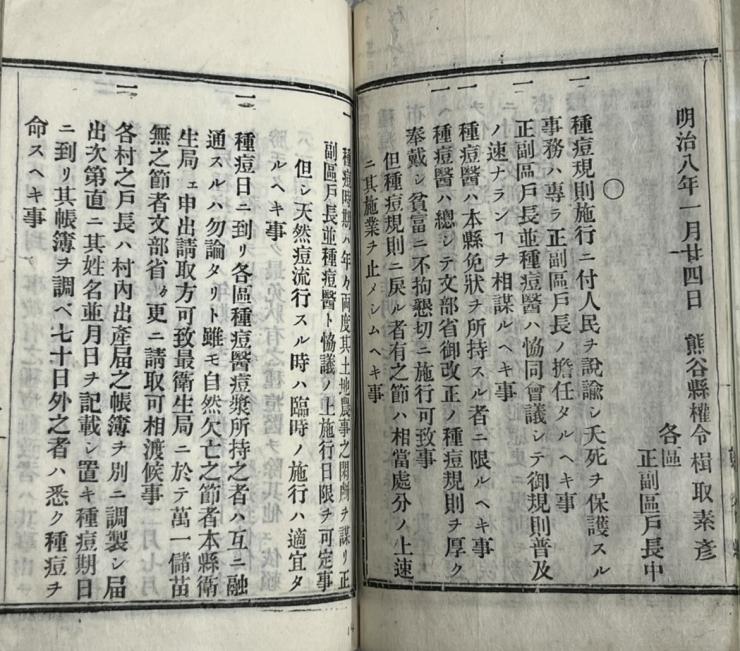 明治八年一月廿四日　熊谷縣權令楫取素彥
各區
正副區戶長中
〇
一　種痘規則施行ニ付人民ヲ說諭シ夭死ヲ保護スル
事務ハ專ラ正副區戶長ノ擔任タルヘキ事
一　正副區戶長並種痘醫ハ協同會議シテ御規則普及
ノ速ナランヿヲ相謀ルヘキ事
一　種痘醫ハ本縣免狀ヲ所持スル者ニ限ルヘキ事
一　種痘醫ハ總シテ文部省御改正ノ種痘規則ヲ厚ク
奉戴シ貧富ニ不拘懇切ニ施行可致事
但種痘規則ニ戾ル者有之節ハ相當處分ノ上速
ニ其施業ヲ止メシムヘキ事
一　種痘時期ハ年々兩度其土地農事之閑所ヲ謀リ正
副區戶長並種痘醫ト恊議ノ上施行日限ヲ可定事
但シ天然痘流行スル時ハ臨時ノ施行ハ適宜タ
ルヘキ事
一　種痘日ニ到リ各區種痘醫痘漿所持之者ハ互ニ融
通スルハ勿論タリト雖モ自然欠亡之節者本縣衛
生局ェ申出請取方可致最衛生局ニ於テ萬一儲苗
無之節者文部省ゟ更ニ請取可相渡候事
一　各村之戶長ハ村內出產屆之帳簿ヲ別ニ調製シ屆
出次第直ニ其姓名並月日ヲ記載シ置キ種痘期日
ニ到リ其帳簿ヲ調ベ七十日外之者ハ悉ク種痘ヲ
命スヘキ事